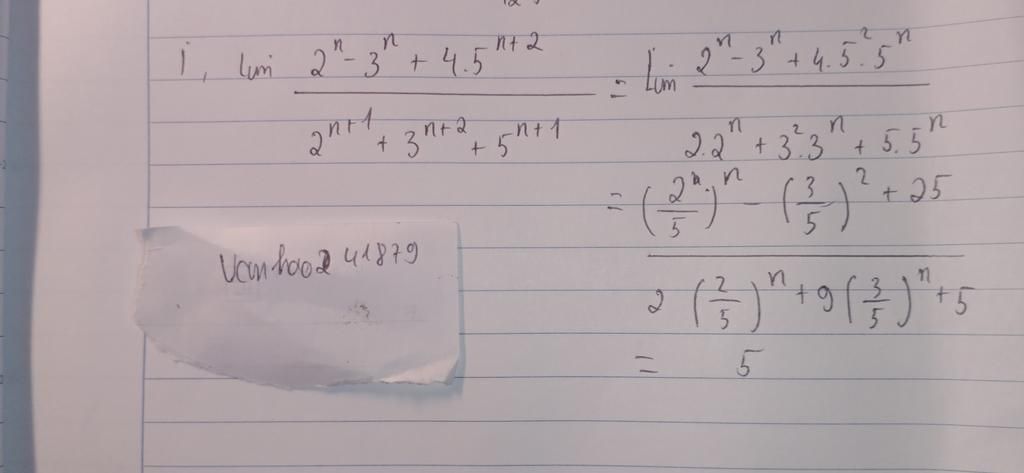 i, lim 2^n - 3^n + 4.5^{n+2} / 2^{n+1} + 3^{n+2} + 5^{n+1} = lim 2^n - 3^n + 4.5^2.5^n / 2.2^n + 3^2.3^n + 5.5^n
= (2^n/5)^n - (3/5)^2 + 25 / 2 (2/5)^n + 9 (3/5)^n + 5
= 5
Vanhao241879